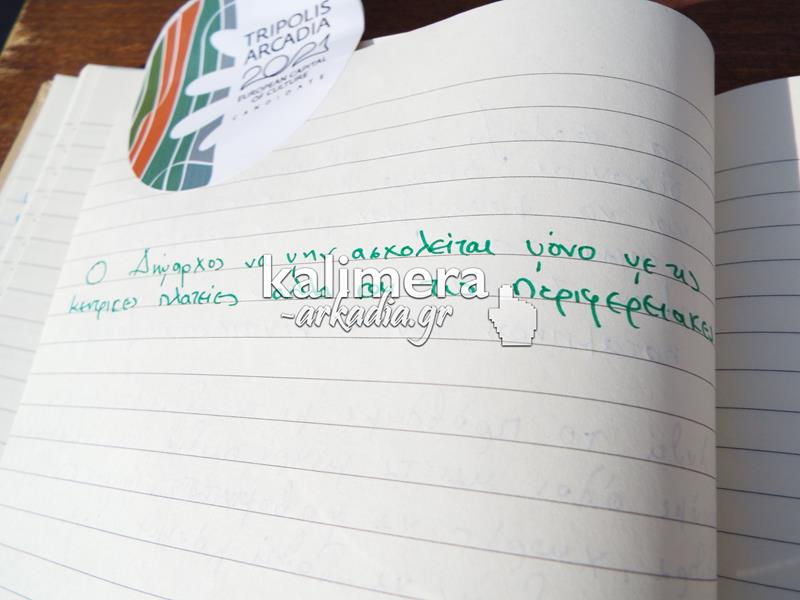 TRIPOLIS
ARCADIA
2021
EUROPEAN CAPITAL
OF CULTURE
CANDIDATE
Ο Δήμαρχος να μην ασχολείται μόνο με τις
κεντρικες πλατείες αλλα και τις περιφερειακες
kalimera
-arkadia.gr